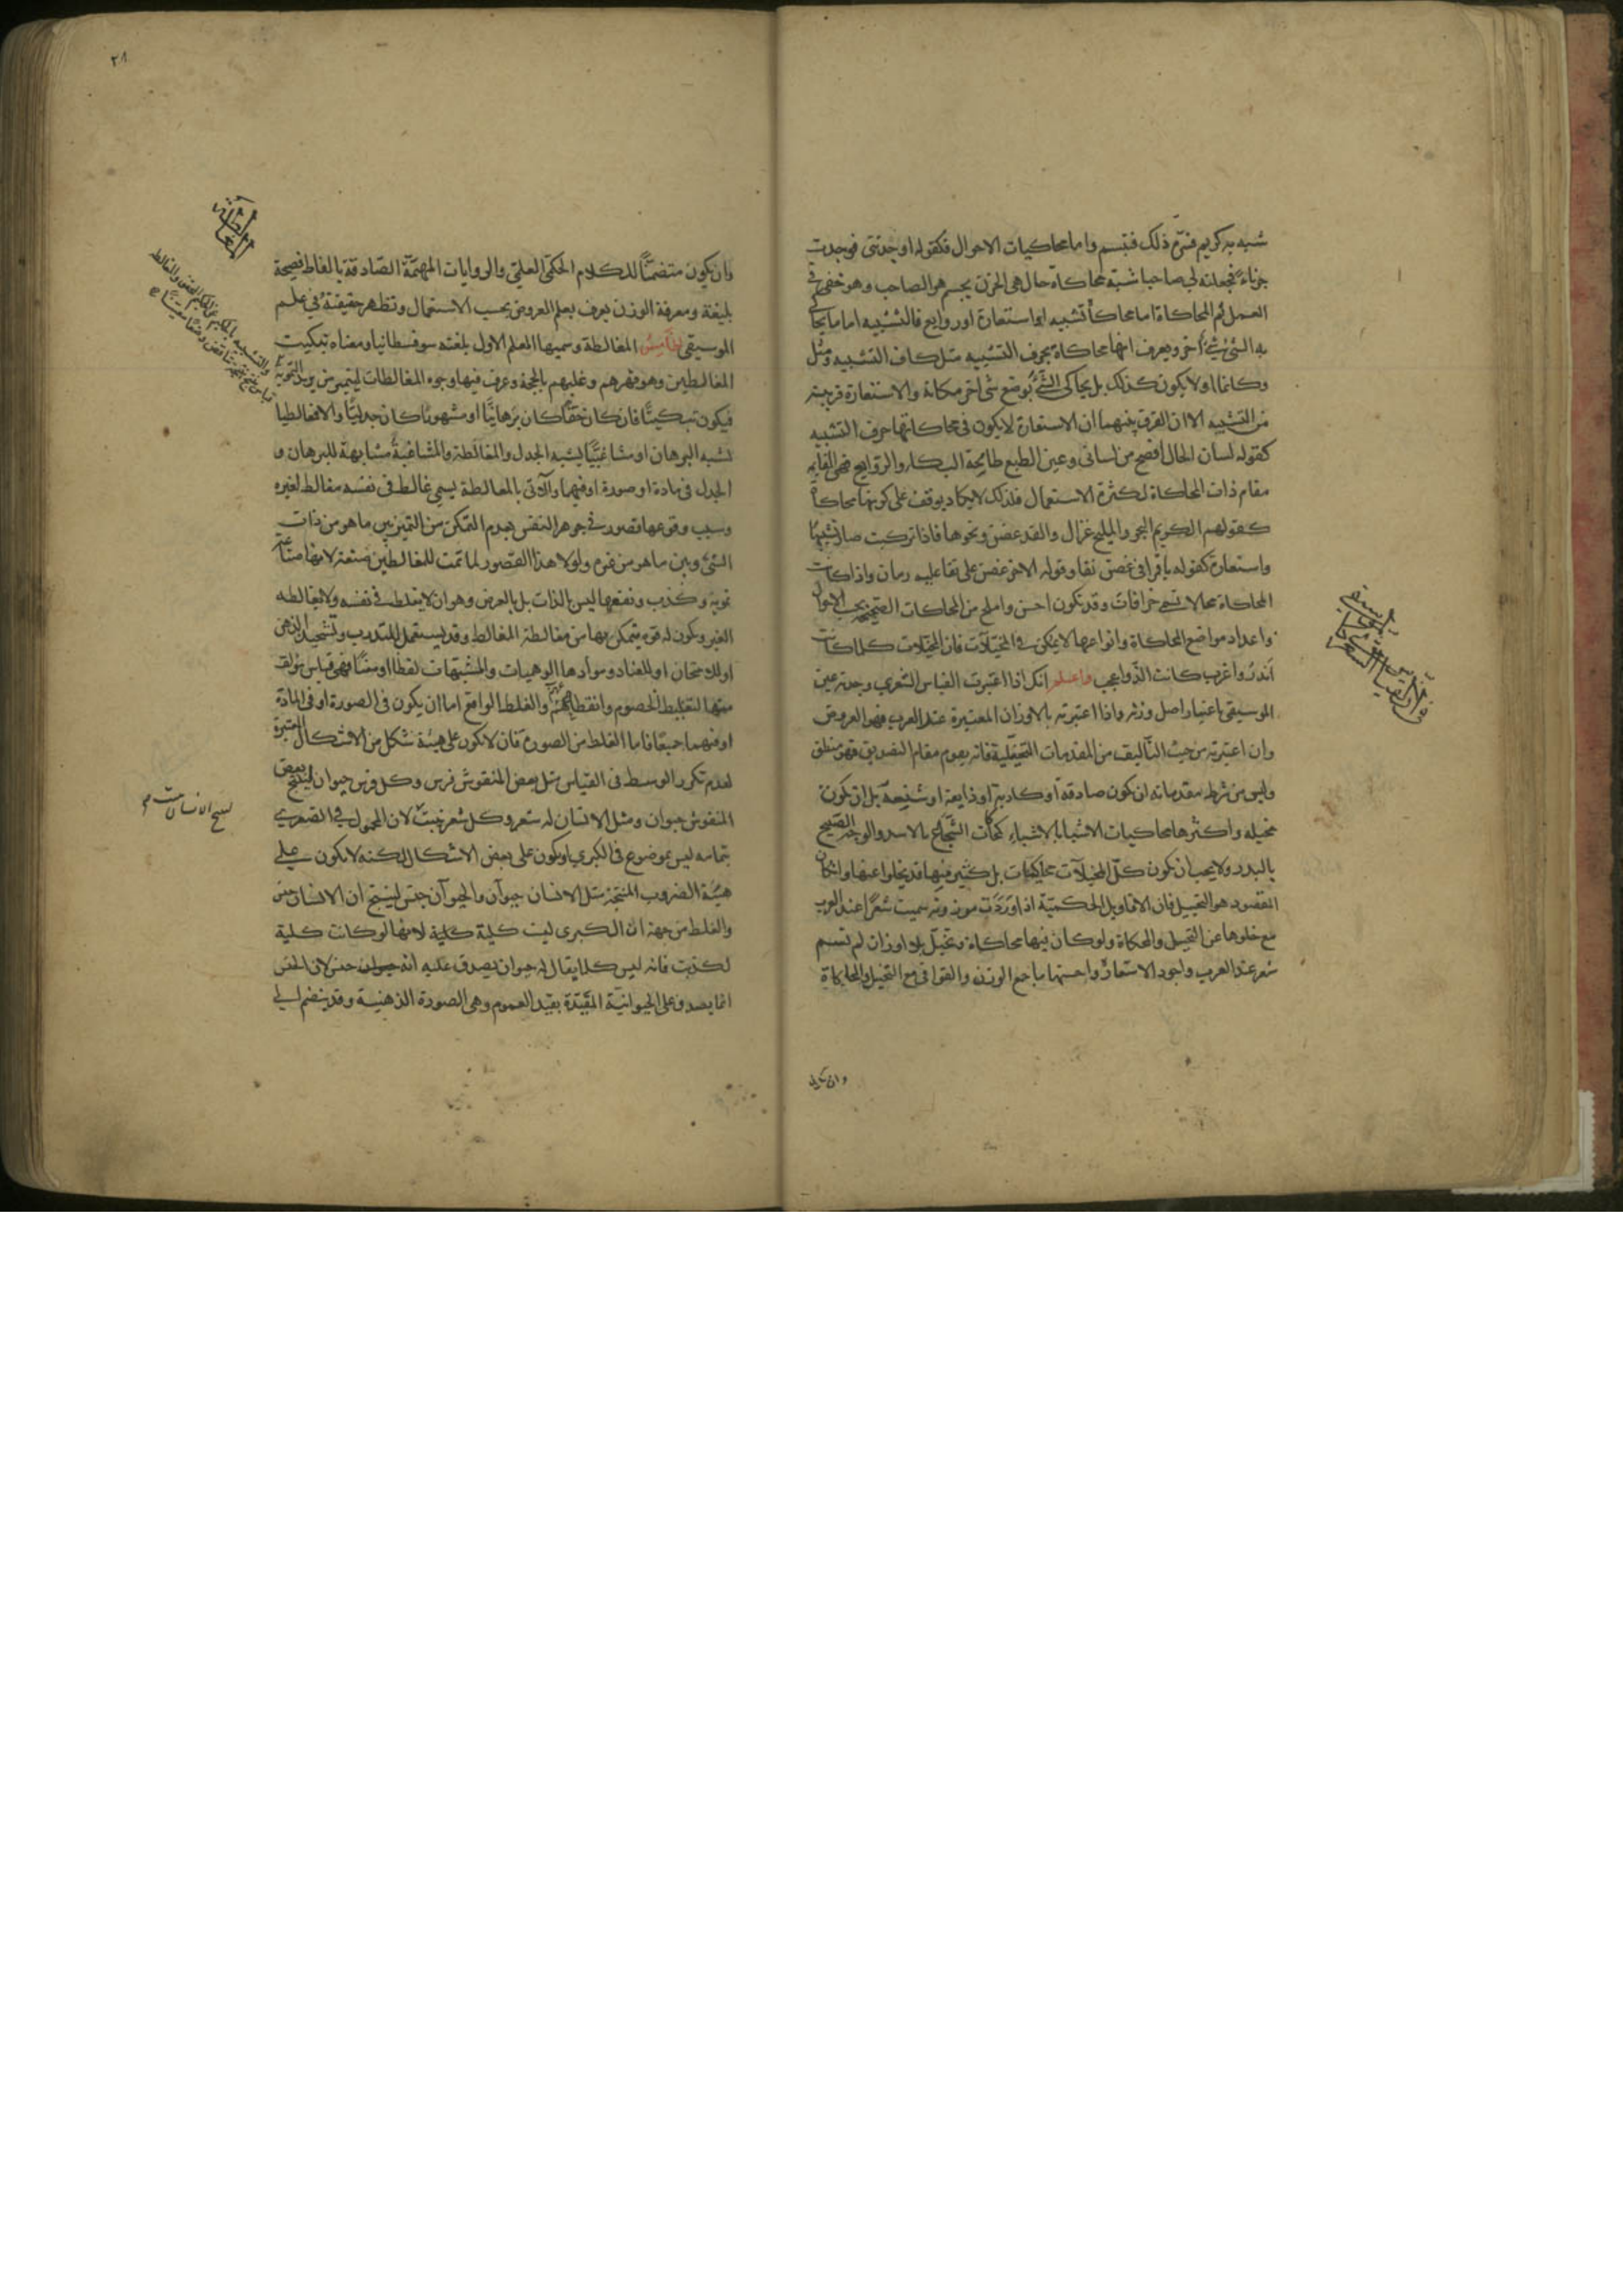 شبه به كريم فتبرّم ذلك فتبسم واما محاكيات الاحوال فكقوله اوحدتنى فوجدت
حزناء فجعلته لي صاحبا شبه محاكاة حال هى الحزن بجسم هو الصاحب وهو خفى فى
العمل ثم المحاكاة اما محاكاة تشبيه اما استعارة او روايع فالتشبيه اما ما يحا
به الشئ شئ آخر ويعرف انها محاكاة بحرف التشبيه مثل كاف التشبيه ومثل
وكانما اولا يكون كذلك بل يحاكى الشئ بوضع شى آخر مكانه والاستعارة قريبة
من التشبيه الا ان الفرق بينهما ان الاستعارة لا يكون فى محاكاتها حرف التشبيه
كقوله لسان الحال افصح من لسانى وعين الطبع طامحة اليك والروايع فهى القايم
مقام ذات المحاكاة لكثرة الاستعمال فلذلك لا يكاد يوقف على كونها محاكاة
كقولهم الكريم البحر والمليح غزال والقد غصن ونحوها فاذا تركبت صار تشبيها
واستعارة كقوله يا قمرا فى غصن نقا وقوله الاخر غصن على نقا عليه رمان واذا كانت
المحاكاة محالا تسمى خرافات وقد تكون احسن واملح من المحاكات الصحيحه بحسب الاحوال
واعداد مواضع المحاكاة وانواعها لا يمكن فى المخيلات فان المخيلات كلما كانت
اندر واغرب كانت الذ واعجب واعلم انك اذا اعتبرت القياس الشعرى وجدته عين
الموسيقى باعتبار اصل وزنه واذا اعتبرته بالاوزان المعتبرة عند العرب فهو العروض
وان اعتبرته من حيث التأليف من المقدمات التخيلية فانه يقوم مقام التصديق فهو منطق
وليس من شرط مقدماته ان تكون صادقة أو كاذبة او ذايعة او شنيعة بل ان تكون
مخيله واكثرها محاكيات الاشيا بالاشياء كمحاكات الشجاع بالاسد والوجه الصبيح
بالبدر ولا يجب ان تكون كلّ المخيلات محاكيات بل كثير منها قد يخلوا عنها وان كان
المقصود هو التخييل فان الاقاويل الحكمية اذا وردت موزونة سميت شعرا عند العرب
مع خلوها عن التخيل والمحاكاة ولو كان فيها محاكاة وتخيل بلا اوزان لم تسم
شعر عند العرب واجود الاشعار واحسنها ما جمع الوزن والقوافى مع التخيل والمحاكاة
وان يكون
٢٨
المغالطة
وان يكون متضمنا للكلام الحكمى العلمى والروايات المهمة الصادقة بالفاظ فصيحة
بليغة ومعرفة الوزن يعرف بعلم العروض بحسب الاستعمال وتظهر حقيقته فى علم
الموسيقى الخامس المغالطة وسميها المعلم الاول بلغته سوفسطانيا ومعناه تبكيت
المغالطين وهو قهرهم وغلبهم بالحجة وعرف فيها وجوه المغالطات ليتميز من يريد التمويه
فيكون تبكيتا فان كان حقا كان برهانيا او مشهورا كان جدليا والا مغالطيا
يشبه البرهان او مشاغبيا يشبه الجدل والمغالطة والمشاغبة مشابهة للبرهان و
الجدل فى مادة او صورة او فيهما والآتى بالمغالطة يسمى غالط فى نفسه مغالط لغيره
وسبب وقوعها قصور فى جوهر النفس بعدم التمكن من التميز بين ما هو من ذات
الشئ وبين ما هو من غيره ولولا هذا القصور لما تمت للمغالطين صنعة لانها صناعة
تمويه وكذب ونفعها ليس بالذات بل بالعرض وهو ان لا يغلط فى نفسه ولا يغالطه
الغير ويكون له قوه يتمكن بها من مغالطة المغالط وقد يستعمل للتدرب وتشحيذ الذهن
او للامتحان او للعناد وموادها الوهميات والمشبهات لفظا او معنا فهى قياس يؤلف
منها لتغليط الخصوم وانقطاعهم والغلط الواقع اما ان يكون فى الصورة او فى المادة
او فيهما جميعا فاما الغلط من الصورة فان لا يكون على هيئة شكل من الاشكال المعتبرة
لعدم تكرر الوسط فى القياس مثل بعض المنقوش فرس وكل فرس حيوان لينتج بعض
المنقوش حيوان ومثل الانسان له شعر وكل شعر ينبت لان المحمول فى الصغرى
بتمامه ليس بموضوع فى الكبرى او يكون على بعض الاشكال لكنه لا يكون على
هيئة الضروب المنتجة مثل الانسان حيوان والحيوان جنس لينتج ان الانسان جنس
والغلط من جهة ان الكبرى ليست كلية لانها لو كانت كلية
لكذبت فانه ليس كلما يقال له حيوان يصدق عليه انه جنس لان الجنس
انما يصدق على الحيوانية المقيدة بقيد العموم وهى الصورة الذهنية وقد ينضم الى
لينتج الانسان ينبت